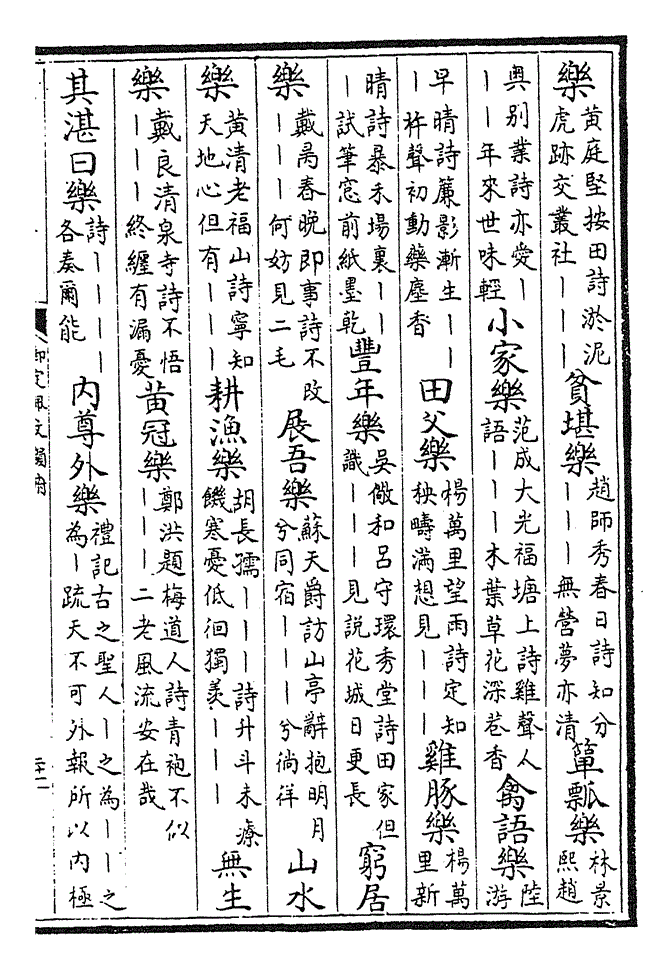 樂黃庭堅按田詩淤泥虎跡交叢社丨丨丨貧堪樂趙師秀春日詩知分丨丨丨無營夢亦清簞瓢樂林景熙趙
奧别業詩亦愛丨丨丨年來世味輕小家樂范成大光福塘上詩雞聲人語丨丨丨木葉草花深巷香禽語樂陸游
早晴詩簾影漸生丨丨丨杵聲初動藥塵香田父樂楊萬里望雨詩定知秧疇滿想見丨丨丨雞豚樂楊萬里新
晴詩暴禾場裏丨丨丨試筆窓前紙墨乾豐年樂吳儆和呂守環秀堂詩田家但識丨丨丨見說花城日更長窮居
樂戴昺春晚即事詩不改丨丨丨何妨見二毛展吾樂蘇天爵訪山亭辭抱明月兮同宿丨丨丨兮徜徉山水
樂黃清老福山詩寧知天地心但有丨丨丨耕漁樂胡長孺丨丨丨詩升斗未療饑寒憂低徊獨羨丨丨丨無生
樂戴良清泉寺詩不悟丨丨丨終纏有漏憂黃冠樂鄭洪題梅道人詩青袍不似丨丨丨二老風流安在哉
其湛曰樂詩丨丨丨丨各奏爾能內尊外樂禮記古之聖人丨之為丨丨之為丨疏天不可外報所以內極
御定佩文韻府